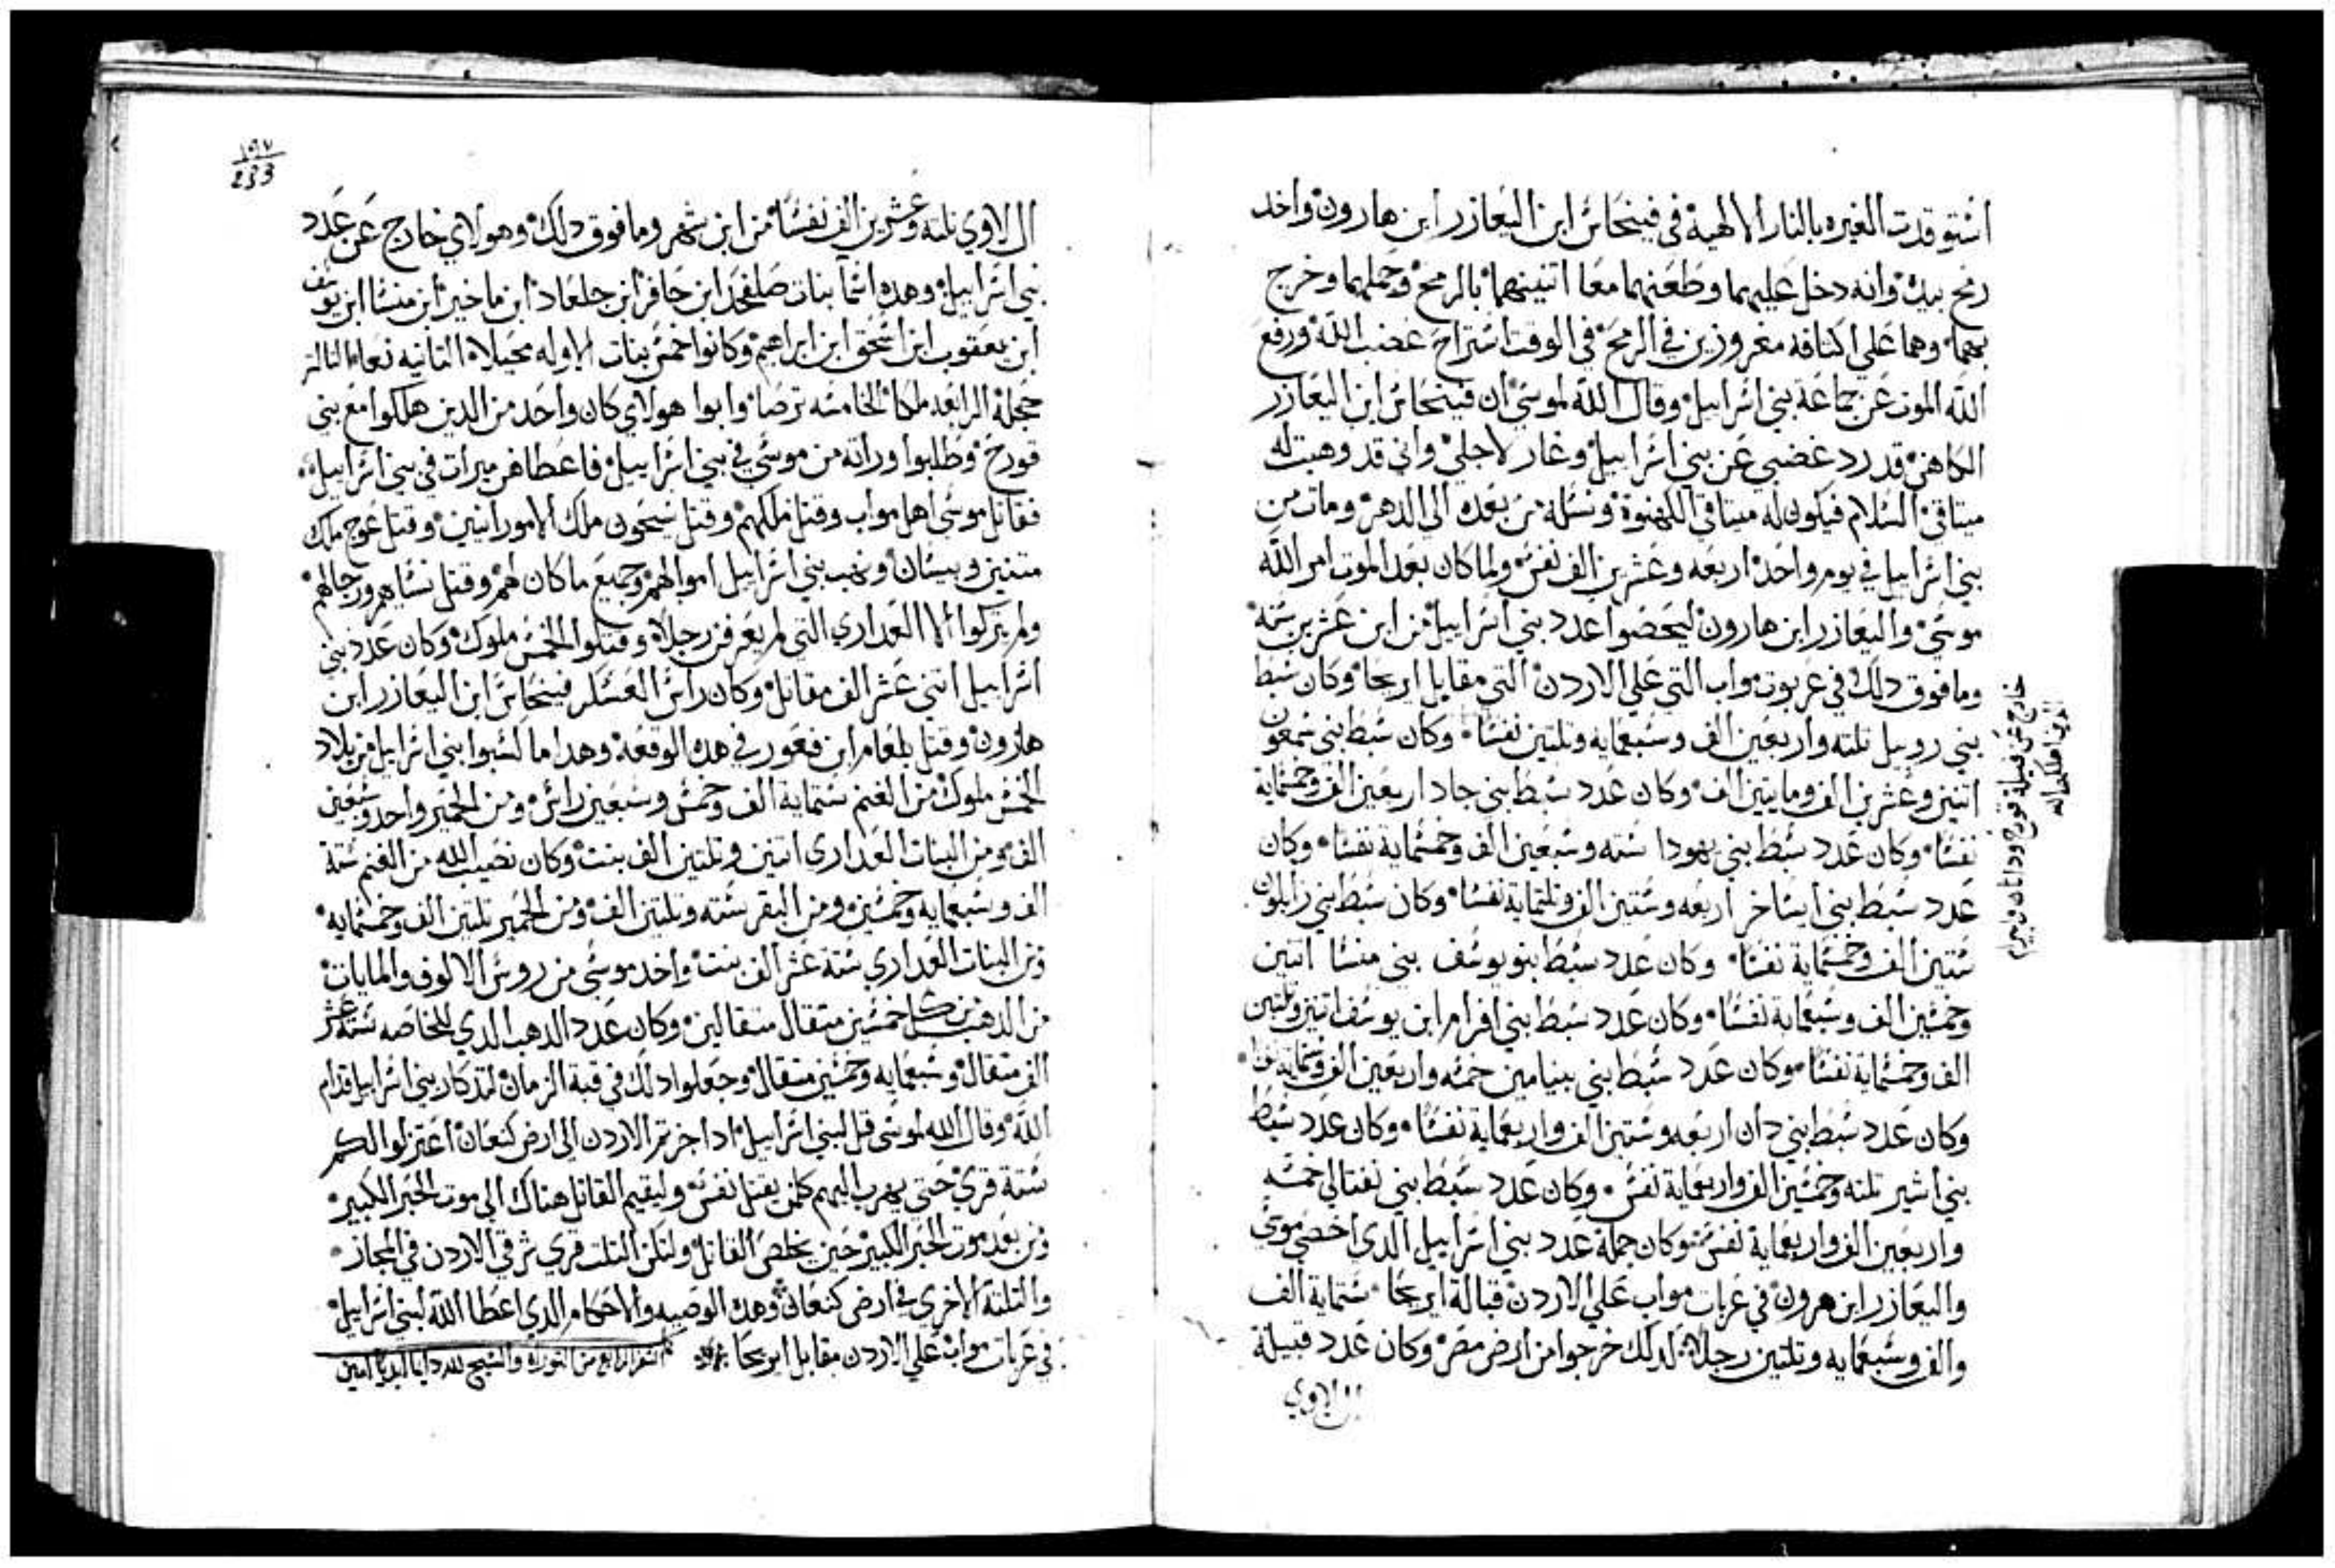 استوقدت الغيره بالنار الالهية في فينحاس ابن اليعازر ابن هارون واخد
رمح بيده وانه دخل عليهما وطعنهما معا اتنينهما بالرمح وحملهما وخرج
بهما وهما علي اكتافه مغروزين في الرمح في الوقت استراح غضب الله ورفع
الله الموت عن جماعة بني اسراييل وقال الله لموسي ان فينحاس ابن اليعازر
الكاهن قد رد غضبي عن بني اسراييل وغار لاجلي واني قد وهبت له
ميتاقي السلام فيكون له ميتاقي الكهنوة ونسله من بعده الي الدهر ومات من
بني اسراييل في يوم واحد اربعه وعشرين الف نفس ولما كان بعد الموت امر الله
موسي واليعازر ابن هارون ليحصوا عدد بني اسراييل من ابن عشرين سنه
وما فوق دلك في عربوت مواب التي علي الاردن التي مقابل اريحا وكان سبط
بني روبيل تلته واربعين الف وسبعمايه وتلتين نفسا وكان سبط بني شمعون
اتنين وعشرين الف ومايتين الف وكان عدد سبط بني جاد اربعين الف وخمسماية
نفسا وكان عدد سبط بني يهودا سته وسبعين الف وخمسماية نفسا وكان
عدد سبط بني ايساخر اربعه وستين الف وتلتماية نفسا وكان سبط بني زابلون
ستين الف وخمسماية نفسا وكان عدد سبط بنو يوسف بني منسا اتنين
وخمسين الف وسبعماية نفسا وكان عدد سبط بني افرام ابن يوسف اتنين وتلتين
الف وخمسماية نفسا وكان عدد سبط بني بنيامين خمسه واربعين الف وستمايه
وكان عدد سبط بني دان اربعه وستين الف واربعماية نفسا وكان عدد سبط
بني اشير تلته وخمسين الف واربعماية نفس وكان عدد سبط بني نفتالي خمسه
واربعين الف واربعماية نفس وكان جملة عدد بني اسراييل الدي احصي موسي
واليعازر ابن هرون في عربات مواب علي الاردن قبالة ايريحا ستماية الف
والف وسبعمايه وتلتين رجلا لدلك خرجوا من ارض مصر وكان عدد قبيلة
ال لاوي
خارج عن قبيلة قورح وداتان وابيرام
الدين اهلكهم الله
١٩٧
233
ال لاوي تلته وعشرين الف نفسا من ابن شهر وما فوق دلك وهولاي خارج عن عدد
بني اسراييل وهده اسما بنات صلفحد ابن حافر ابن جلعاد ابن ماخير ابن منسا ابن يوسف
ابن يعقوب ابن اسحق ابن ابراهيم وكانوا خمس بنات الاوله محيلاه التانيه نعا التالته
حجلة الرابعه ملكا الخامسه ترصا وابوا هولاي كان واحد من الدين هلكوا مع بني
قورح وطلبوا وراته من موسي في بني اسراييل فاعطاهن ميرات في بني اسراييل
فقاتل موسي اهل مواب وقتل ملكهم وقتل سيحون ملك الامورانيين وقتل عوج ملك
متنين وبيسان ونهب بني اسراييل اموالهم وجميع ما كان لهم وقتل نساهم ورجالهم
ولم يتركوا الا العداري التي لم يعرفن رجلا وقتلوا الخمس ملوك وكان عدد بني
اسراييل اتني عشر الف مقاتل وكان راس العسكر فينحاس ابن اليعازر ابن
هارون وقتل بلعام ابن فعور في هده الوقعه وهدا ما كسبوا بني اسراييل من بلاد
الخمس ملوك من الغنم ستماية الف وخمس وسبعين راس ومن الحمير واحد وسبعين
الف ومن البنات العداري اتنين وتلتين الف بنت وكان نصيب الله من الغنم ستة
الف وسبعمايه وخمسين ومن البقر سته وتلتين الف ومن الحمير تلتين الف وخمسمايه
ومن البنات العداري ستة عشر الف بنت واخد موسي من روس الالوف والمايات
من الدهب من كل خمسين متقال متقالين وكان عدد الدهب الدي للخاصه ستة عشر
الف متقال وسبعمايه وخمسين متقال وجعلوا دلك في قبة الزمان لتدكار بني اسراييل قدام
الله وقال الله لموسي قل لبني اسراييل ادا جزتم الاردن الي ارض كنعان اعتزلوا لكم
ستة قري حتي يهرب اليهم كلمن يقتل نفس وليقيم القاتل هناك الي موت الحبر الكبير
ومن بعد موت الحبر الكبير حين يخلص القاتل ولتكن التلت قري شرقي الاردن في المجاز
والتلتة الاخري في ارض كنعان وهده الوصيه والاحكام الدي اعطا الله لبني اسراييل
في عربات مواب علي الاردن مقابل ايريحا كمل السفر الرابع من التوراه والسبح لله دايما ابديا امين